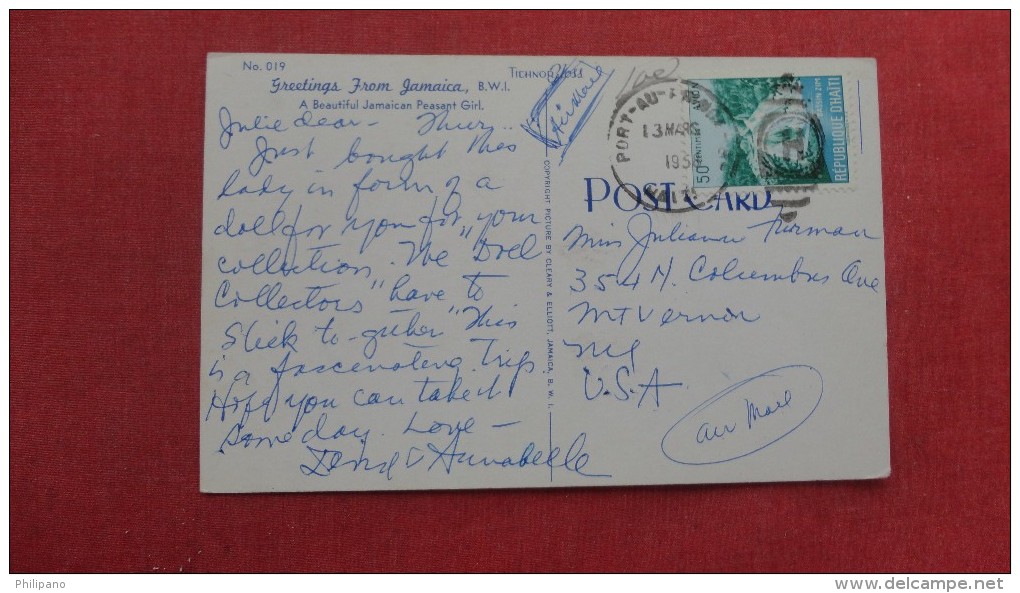 No. 019
TICHNOR
Greetings From Jamaica, B.W.I.
A Beautiful Jamaican Peasant Girl.
Julie dear - Thur.
Just bought this
lady in form of a
doll for you for your
collection. We "Doll
Collectors" have to
Stick to-gether" This
is a fascinating trip.
Hope you can take it
some day. Love -
Annabelle
COPYRIGHT PICTURE BY CLEARY & ELLIOTT, JAMAICA, B. W. I.
Air Mail
PORT-AU-PRINCE
13 MARS
195
HAITI
50 CENTIMES
AVION
BASSIN ZIM
RÉPUBLIQUE D'HAÏTI
POST CARD
Miss Julianne Furman
354 N. Columbus Ave
Mt Vernon
NY
U.S.A
Air Mail
Philipano
www.delcampe.net